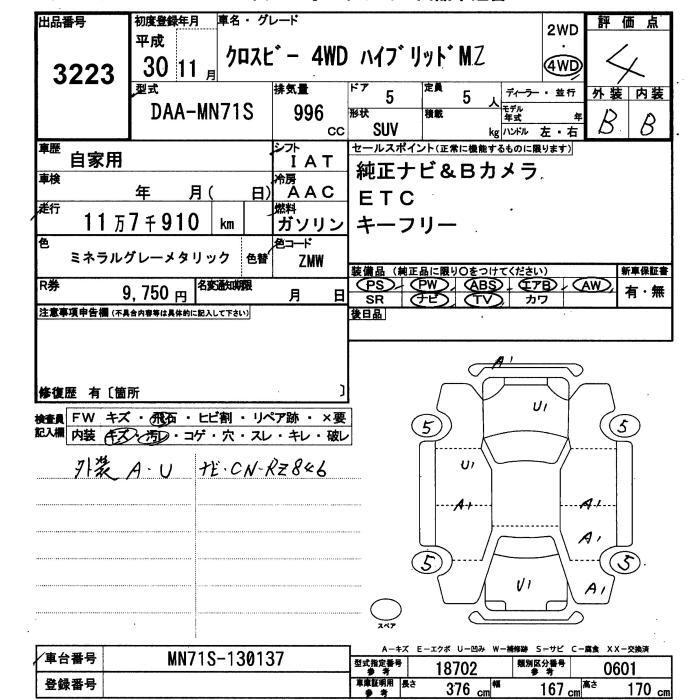 出品番号 3223
初度登録年月 平成 30 11月
車名・グレード クロスビー 4WD ハイブリッドMZ
2WD・4WD
評価点 4
外装 B 内装 B
型式 DAA-MN71S
排気量 996 CC
ドア 5
定員 5人
形状 SUV
積載 kg
ディーラー・並行
モデル年式 年
ハンドル 左・右
車歴 自家用
シフト IAT
車検 年 月( 日)
冷房 AAC
走行 11万7千910 km
燃料 ガソリン
色 ミネラルグレーメタリック
色替
色コード ZMW
R券 9,750円
名変通知期限 月 日
セールスポイント(正常に機能するものに限ります)
純正ナビ&Bカメラ
ETC
キーフリー
装備品(純正品に限り○をつけてください)
PS PW ABS エアB AW
SR ナビ TV カワ
新車保証書 有・無
後日品
注意事項申告欄(不具合内容等は具体的に記入して下さい)
修復歴 有〔箇所 〕
検査員記入欄
FW キズ・飛石・ヒビ割・リペア跡・×要
内装 キズ・汚レ・コゲ・穴・スレ・キレ・破レ
外装 A・U
ナビ・CN-RZ846
A1
U1
5 5
U1
A1 A1
A1
5 5
U1 A1
スペア
A-キズ E-エクボ U-凹み W-補修跡 S-サビ C-腐食 XX-交換済
車台番号 MN71S-130137
登録番号
型式指定番号 参考 18702
類別区分番号 参考 0601
車庫証明用 参考 長さ 376cm 幅 167cm 高さ 170cm